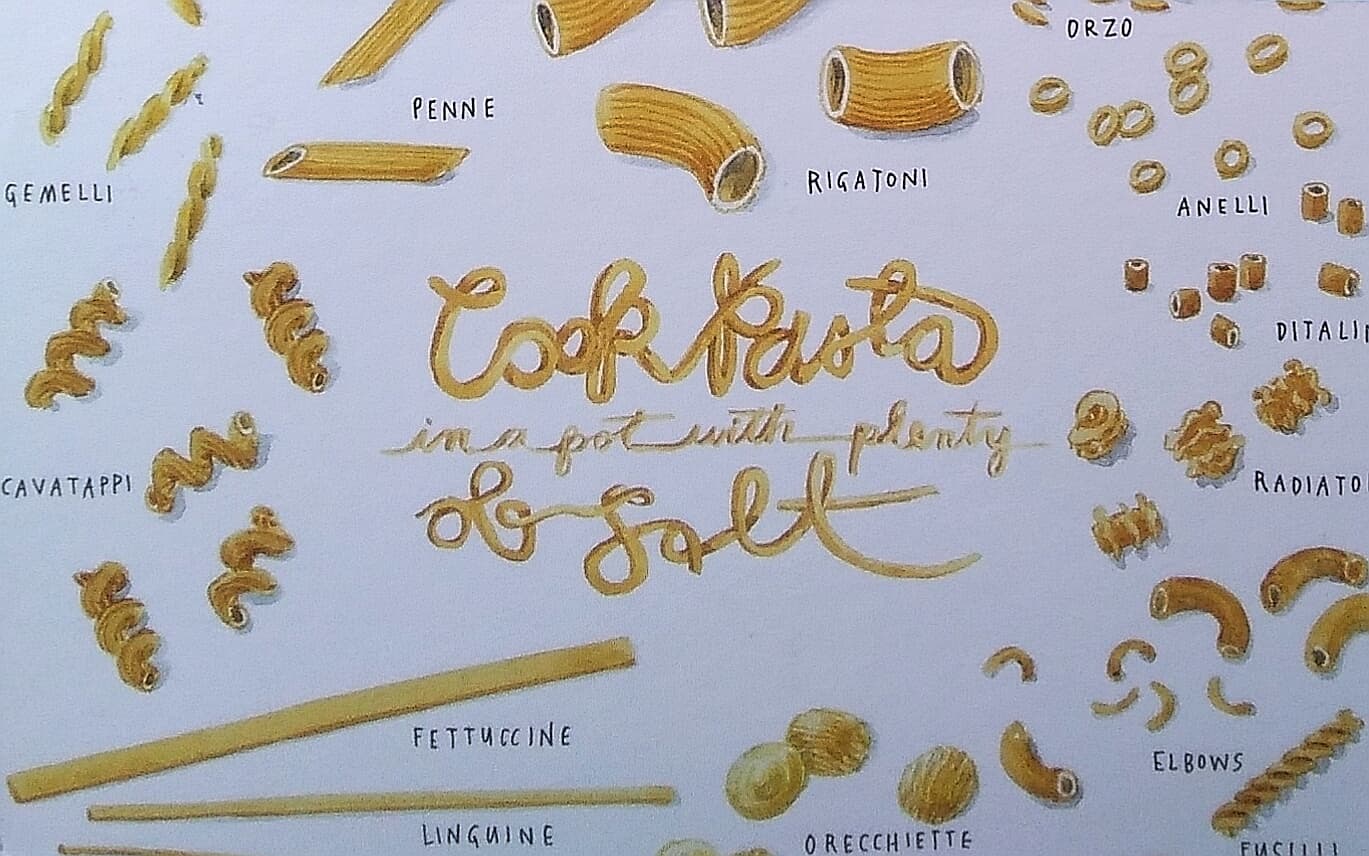 ORZO
PENNE
RIGATONI
GEMELLI
ANELLI
Cook Pasta
in a pot with plenty
of Salt
DITALI
RADIATO
CAVATAPPI
FETTUCCINE
ELBOWS
LINGUINE
ORECCHIETTE
FUSILLI